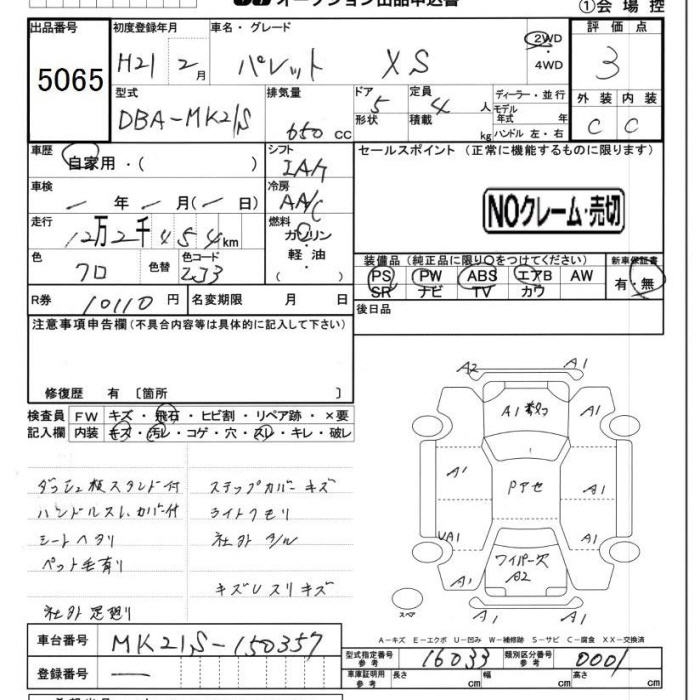 オークション出品申込書
①会場控
出品番号 初度登録年月 車名・グレード 評価点
5065 H21 2月 パレット XS 2WD・4WD 3
型式 排気量 ドア形状 定員 積載 ディーラー・並行 外装 内装
DBA-MK21S 650cc 5 4人 kg モデル年式 年 ハンドル 左・右 C C
車歴 自家用・( ) シフト IAT セールスポイント (正常に機能するものに限ります)
車検 年 月( 日) 冷房 AA/C
NOクレーム・売切
走行 12万2千454km 燃料 ガソリン・軽油 ( )
色 クロ 色替 色コード ZJ3
装備品 (純正品に限り○をつけてください) 新車保証書
PS PW ABS エアB AW 有・無
SR ナビ TV カワ
R券 10110円 名変期限 月 日
後日品
注意事項申告欄 (不具合内容等は具体的に記入して下さい)
修復歴 有 〔箇所 〕
検査員 FW キズ・飛石・ヒビ割・リペア跡・×要
記入欄 内装 キズ・汚レ・コゲ・穴・スレ・キレ・破レ
A2 A1
A1
A1 A1
A1 Pアセ A1
UA1 A1
ワイパー欠
A2
A1 A1
スペア
ダッシュ板スタンド付 ステップカバーキズ
ハンドルスレ カバー付 ライトクモリ
シートヘタリ 社外マフル
ペット毛有り
キズ レ スリキズ
社外足廻り
A−キズ E−エクボ U−凹み W−補修跡 S−サビ C−腐食 XX−交換済
車台番号 MK21S-150357
型式指定番号 参考 16033 類別区分番号 参考 0001
登録番号 —
車庫証明用 参考 長さ cm 幅 cm 高さ cm